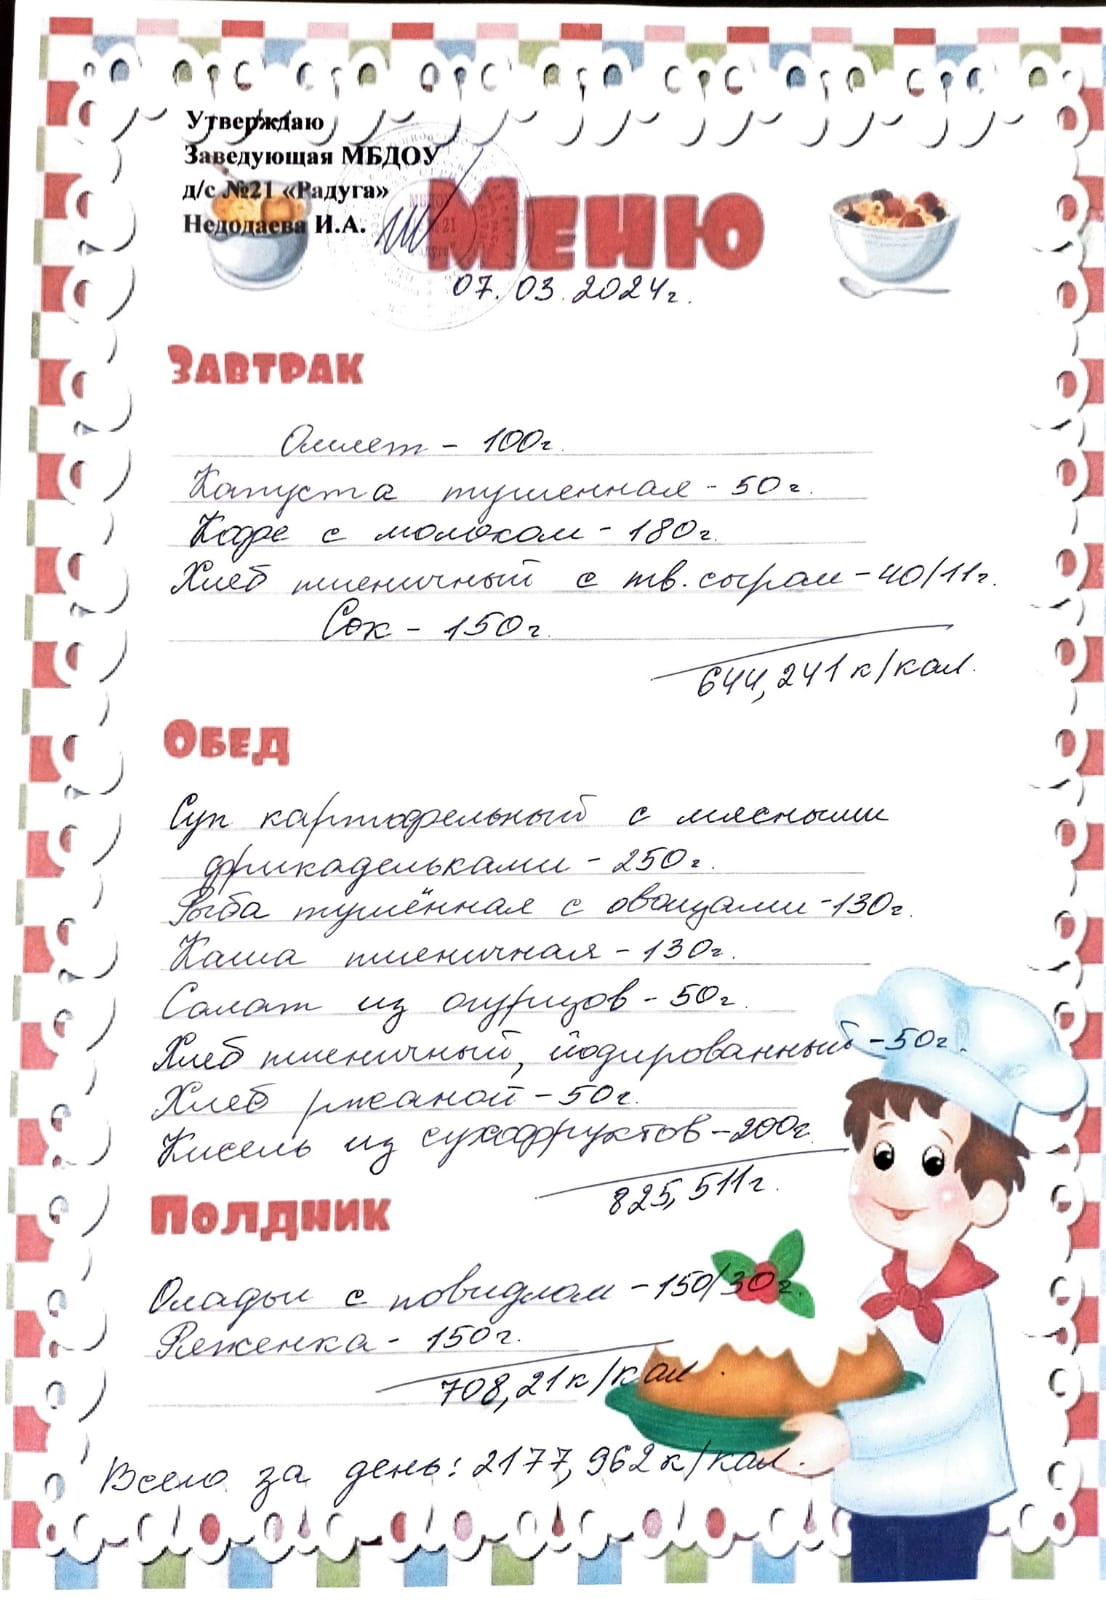 Утверждаю
Заведующая МБДОУ
д/с №21 «Радуга»
Недодаева И.А.
Меню
07.03.2024г.
Завтрак
Омлет - 100г.
Капуста тушенная - 50г.
Кофе с молоком - 180г.
Хлеб пшеничный с тв. сыром - 40/11г.
Сок - 150г.
644,241 к/кал.
Обед
Суп картофельный с мясными
фрикадельками - 250г.
Рыба тушённая с овощами - 130г.
Каша пшеничная - 130г.
Салат из огурцов - 50г.
Хлеб пшеничный, йодированный - 50г.
Хлеб ржаной - 50г.
Кисель из сухофруктов - 200г.
825,511г.
Полдник
Оладьи с повидлом - 150/30г.
Ряженка - 150г.
708,21 к/кал.
Всего за день: 2177,962 к/кал.